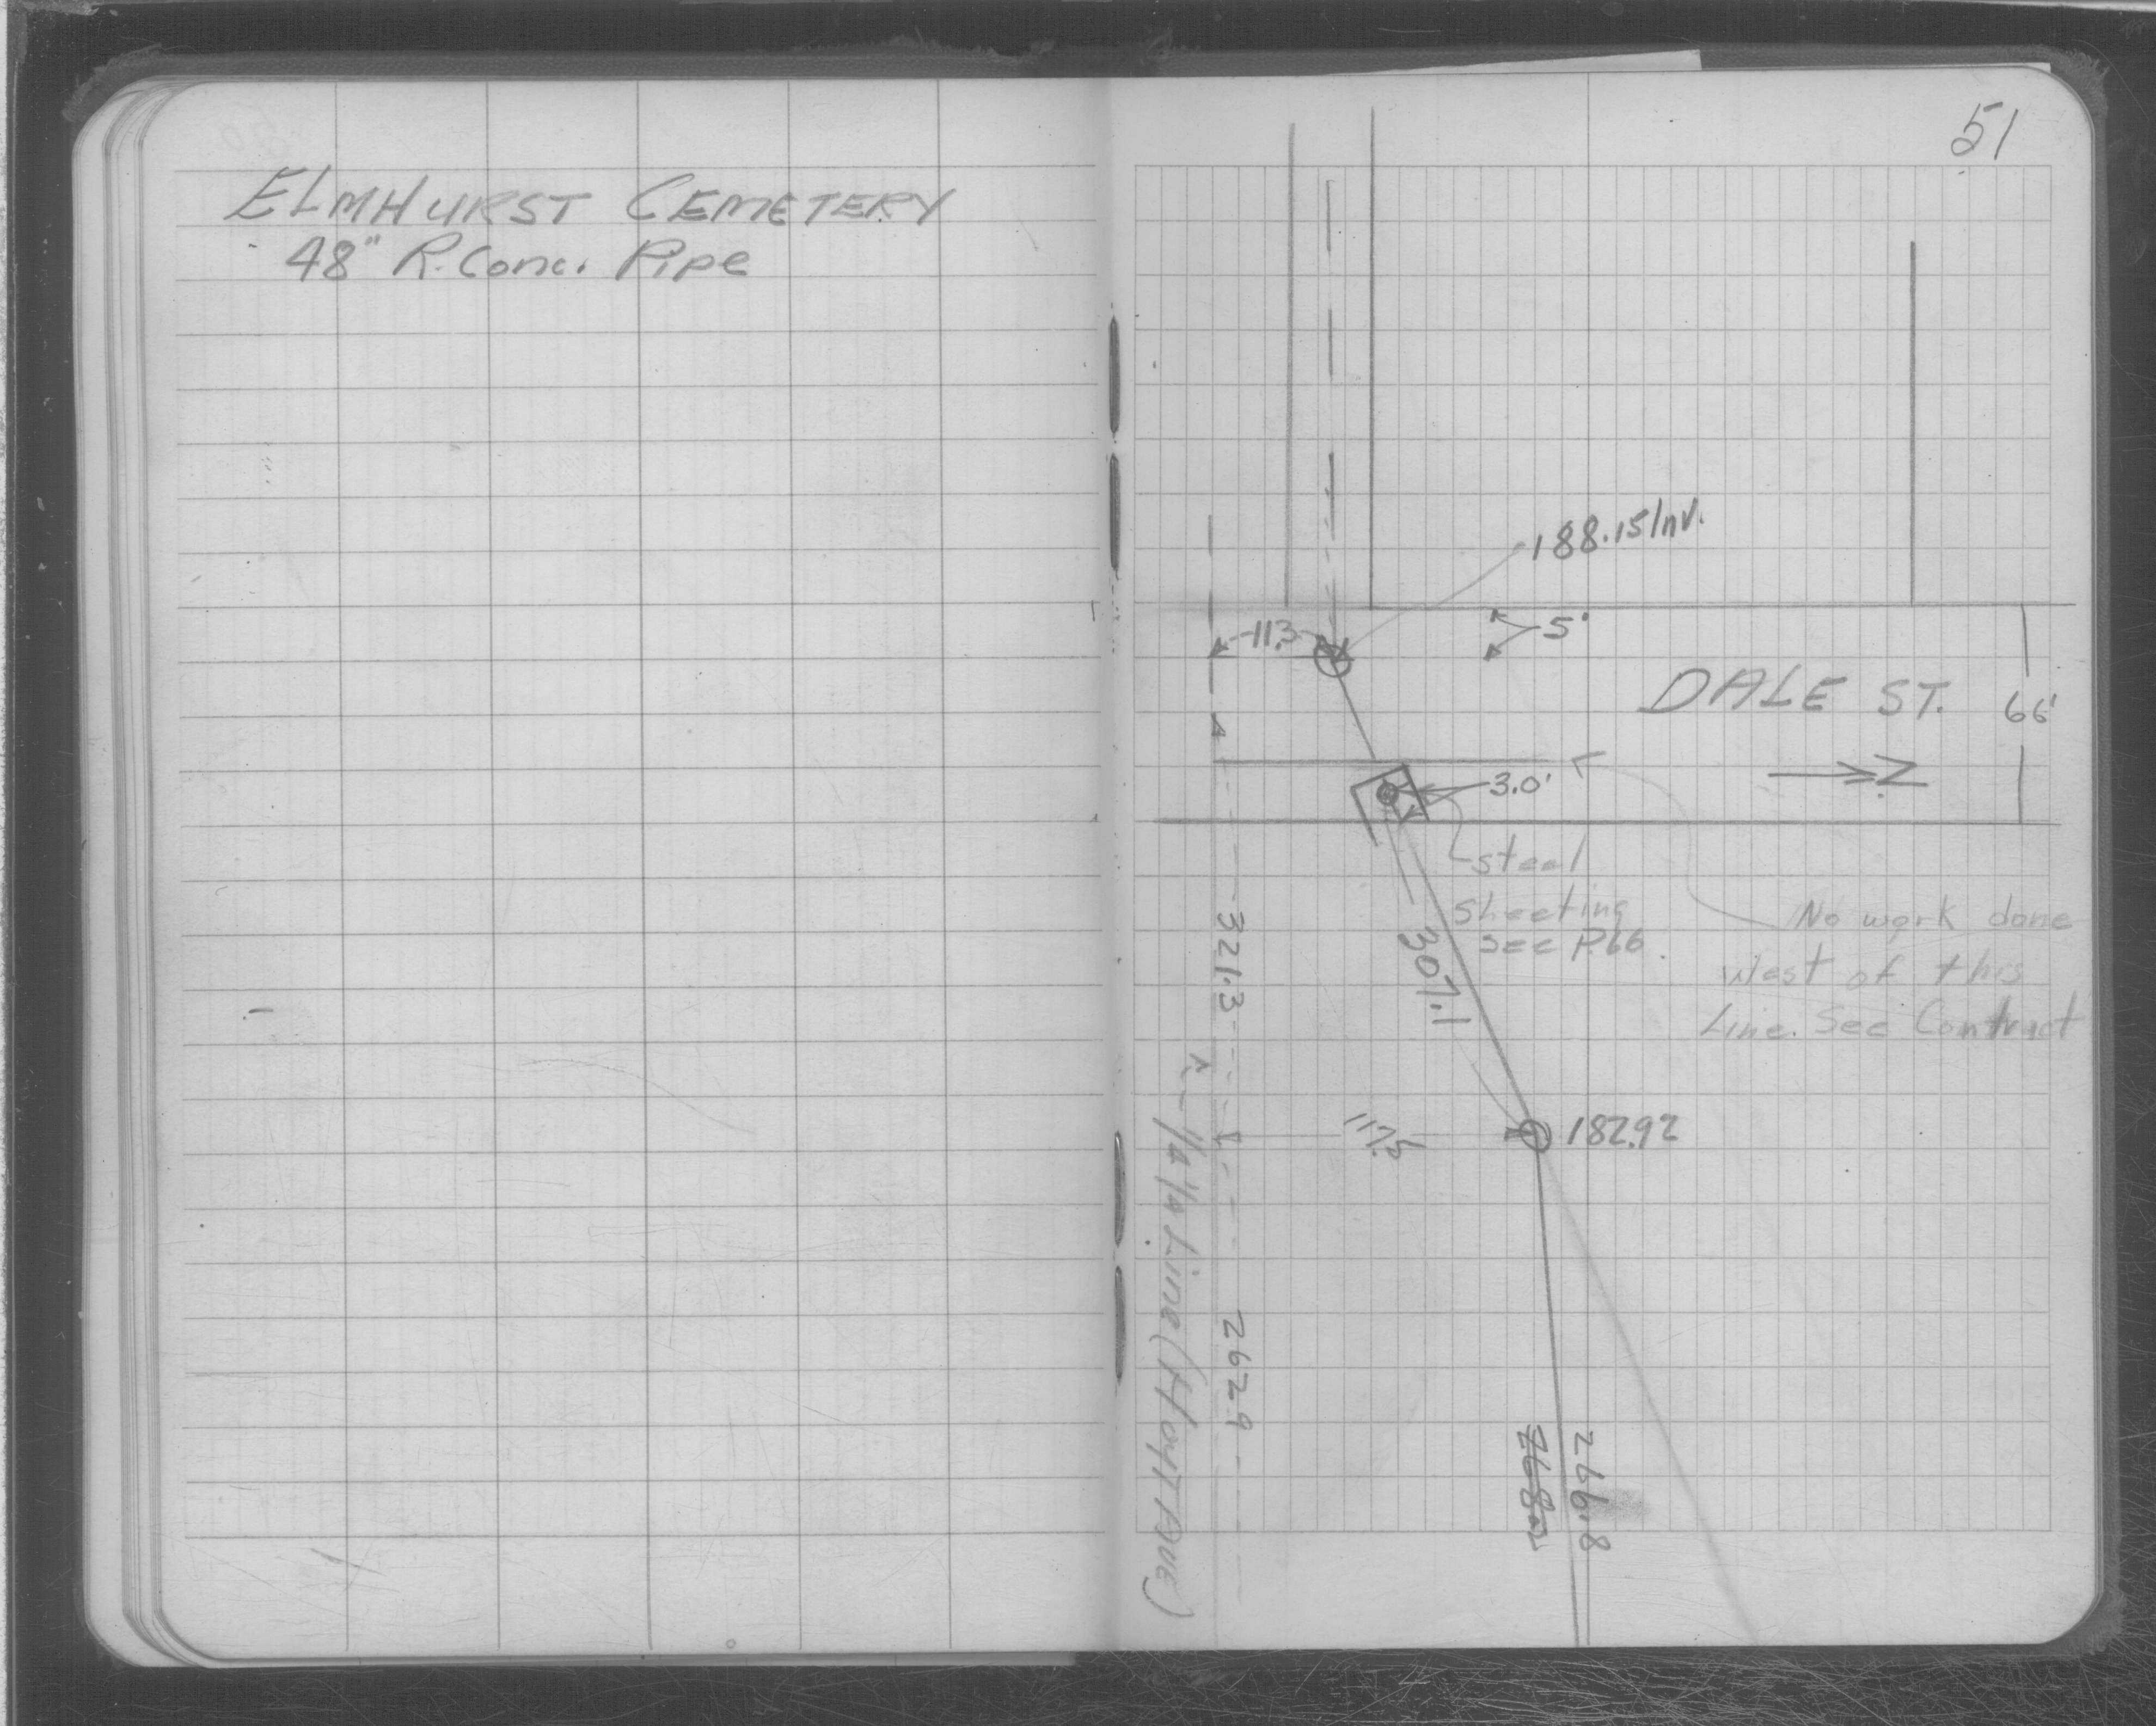 ELMHURST CEMETERY
48" R. Conc. Pipe
51
188.15 Inv.
11.3
5'
DALE ST.
66'
N
3.0'
steel
sheeting
see P.66.
No work done
West of this
Line. See Contract
321.3
307.1
117.5
182.92
262.9
266.8